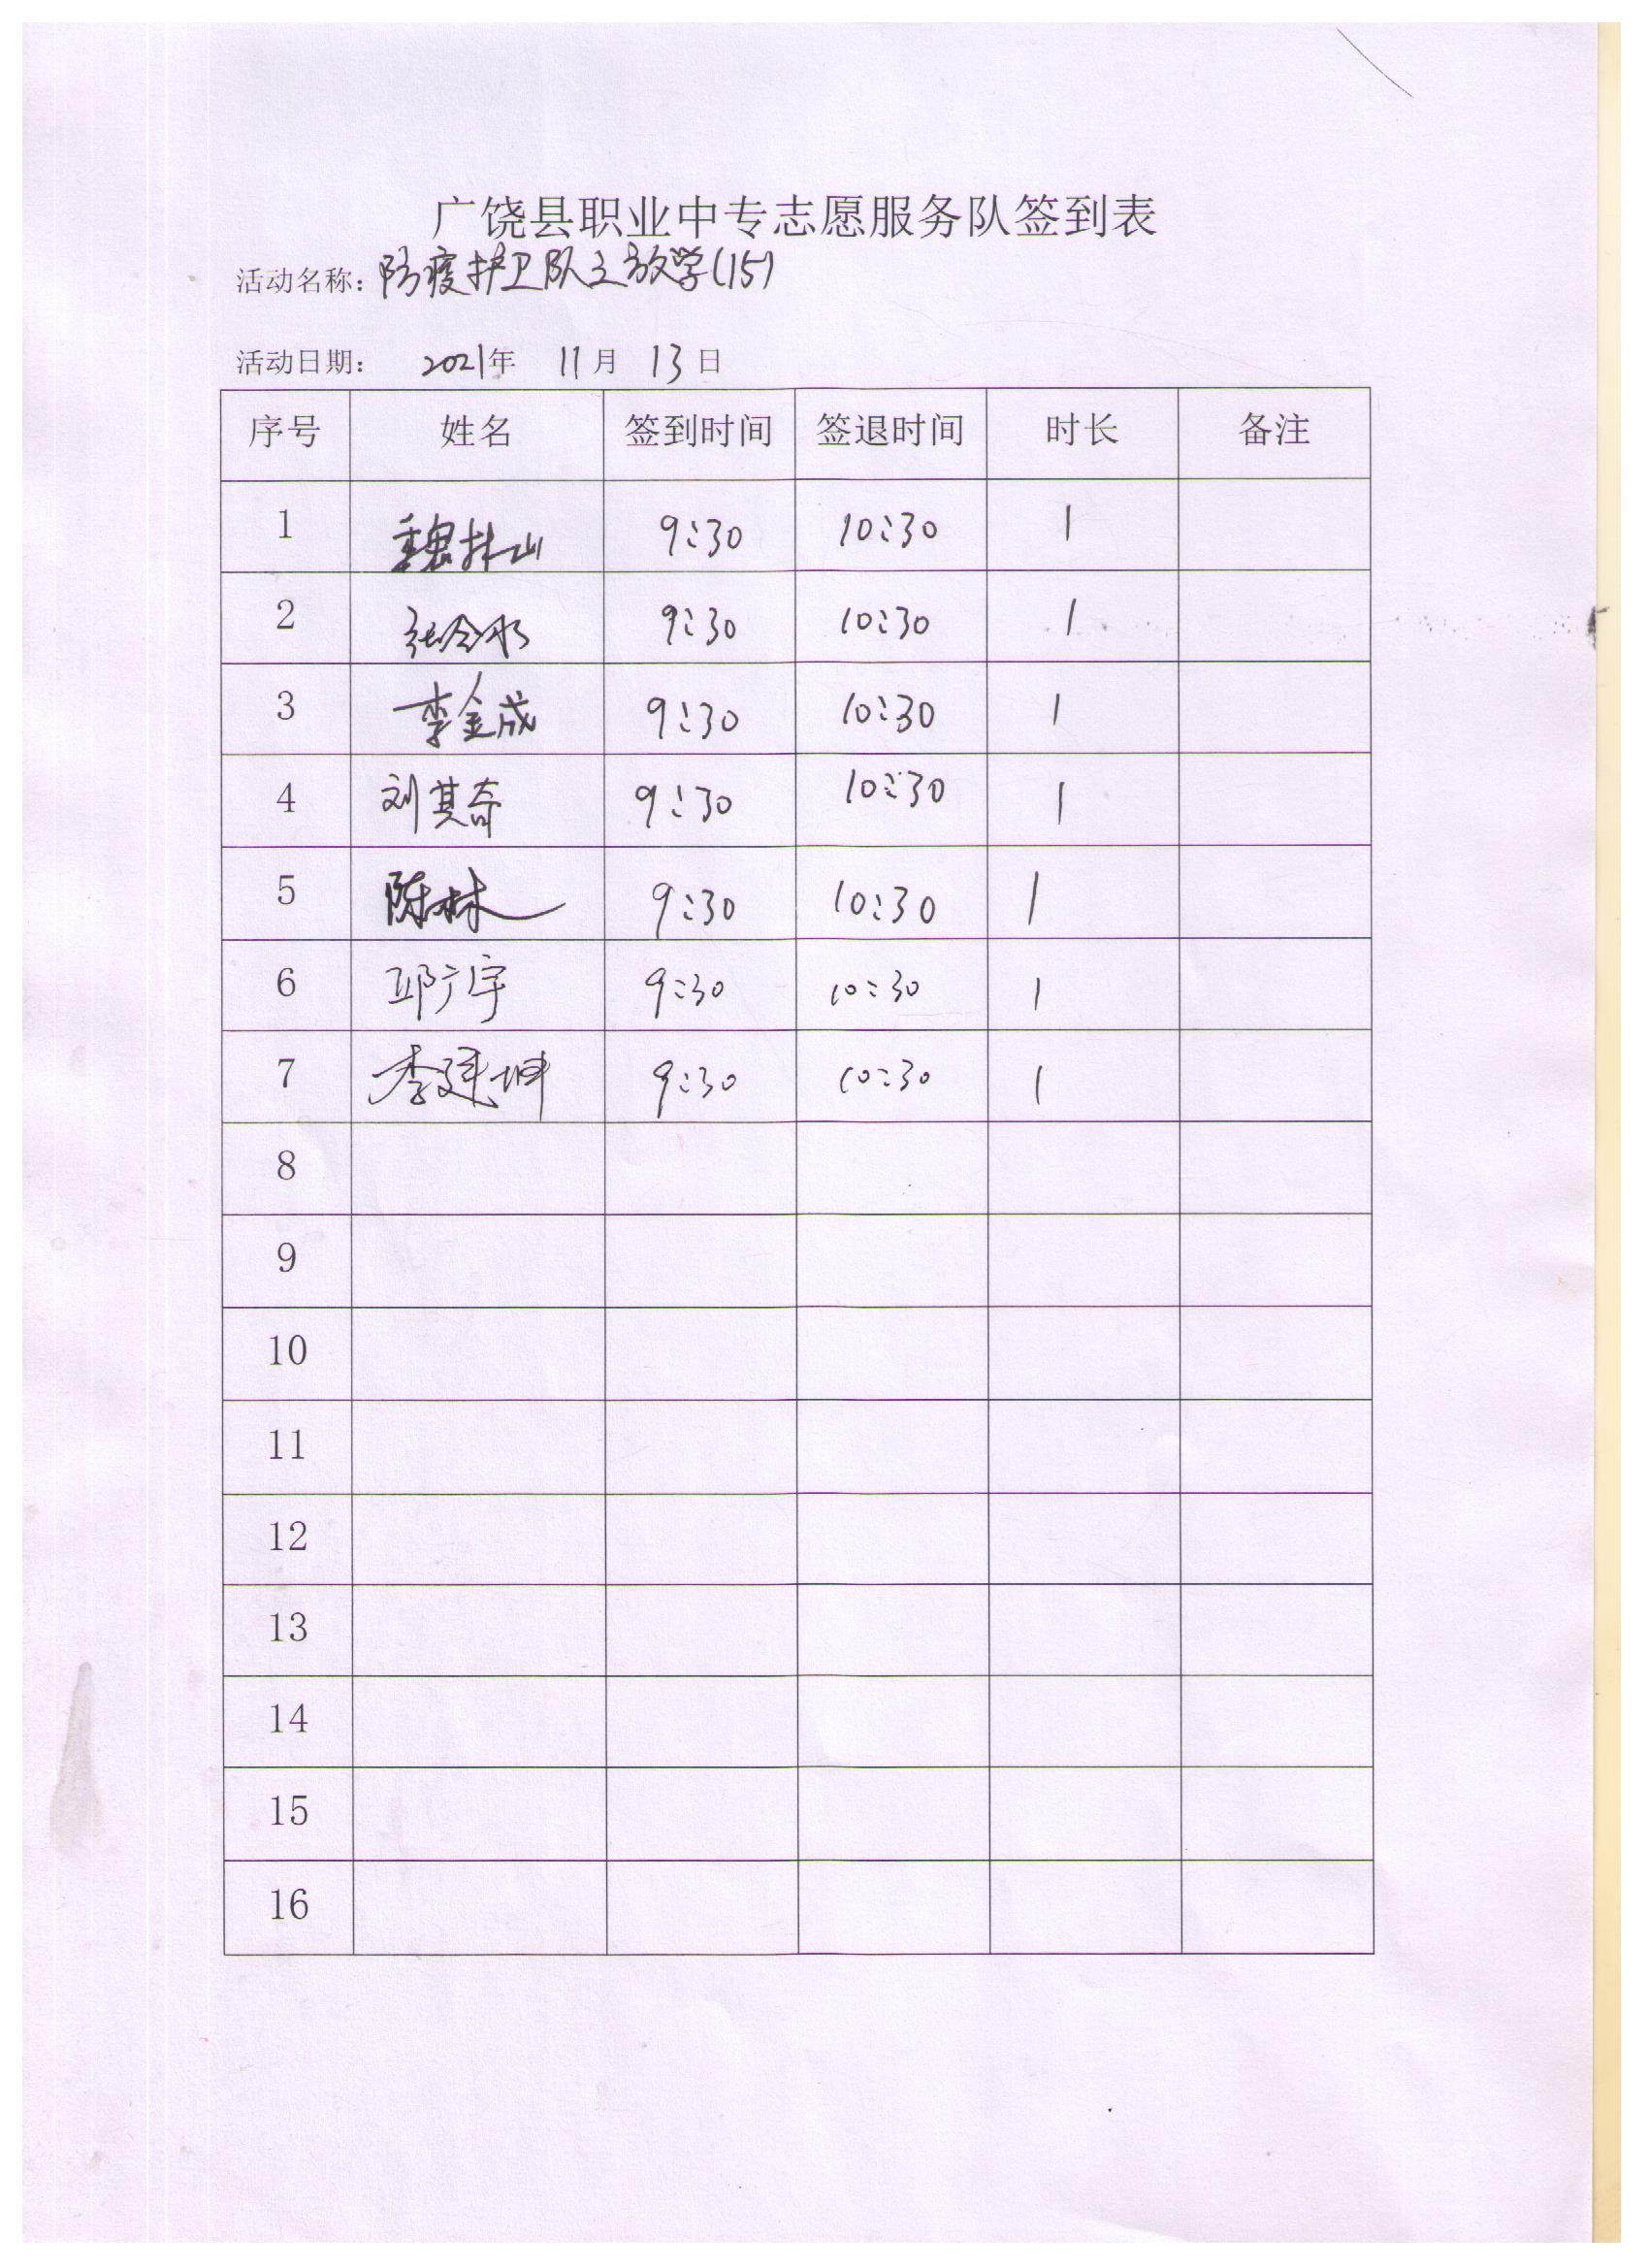 广饶县职业中专志愿服务队签到表
活动名称：防疫护卫队之放学(15)
活动日期： 2021年 11月 13日
序号 姓名 签到时间 签退时间 时长 备注
1 魏林山 9:30 10:30 1
2 9:30 10:30 1
3 李金成 9:30 10:30 1
4 刘其奇 9:30 10:30 1
5 陈林 9:30 10:30 1
6 邱广宇 9:30 10:30 1
7 李建坤 9:30 10:30 1
8
9
10
11
12
13
14
15
16